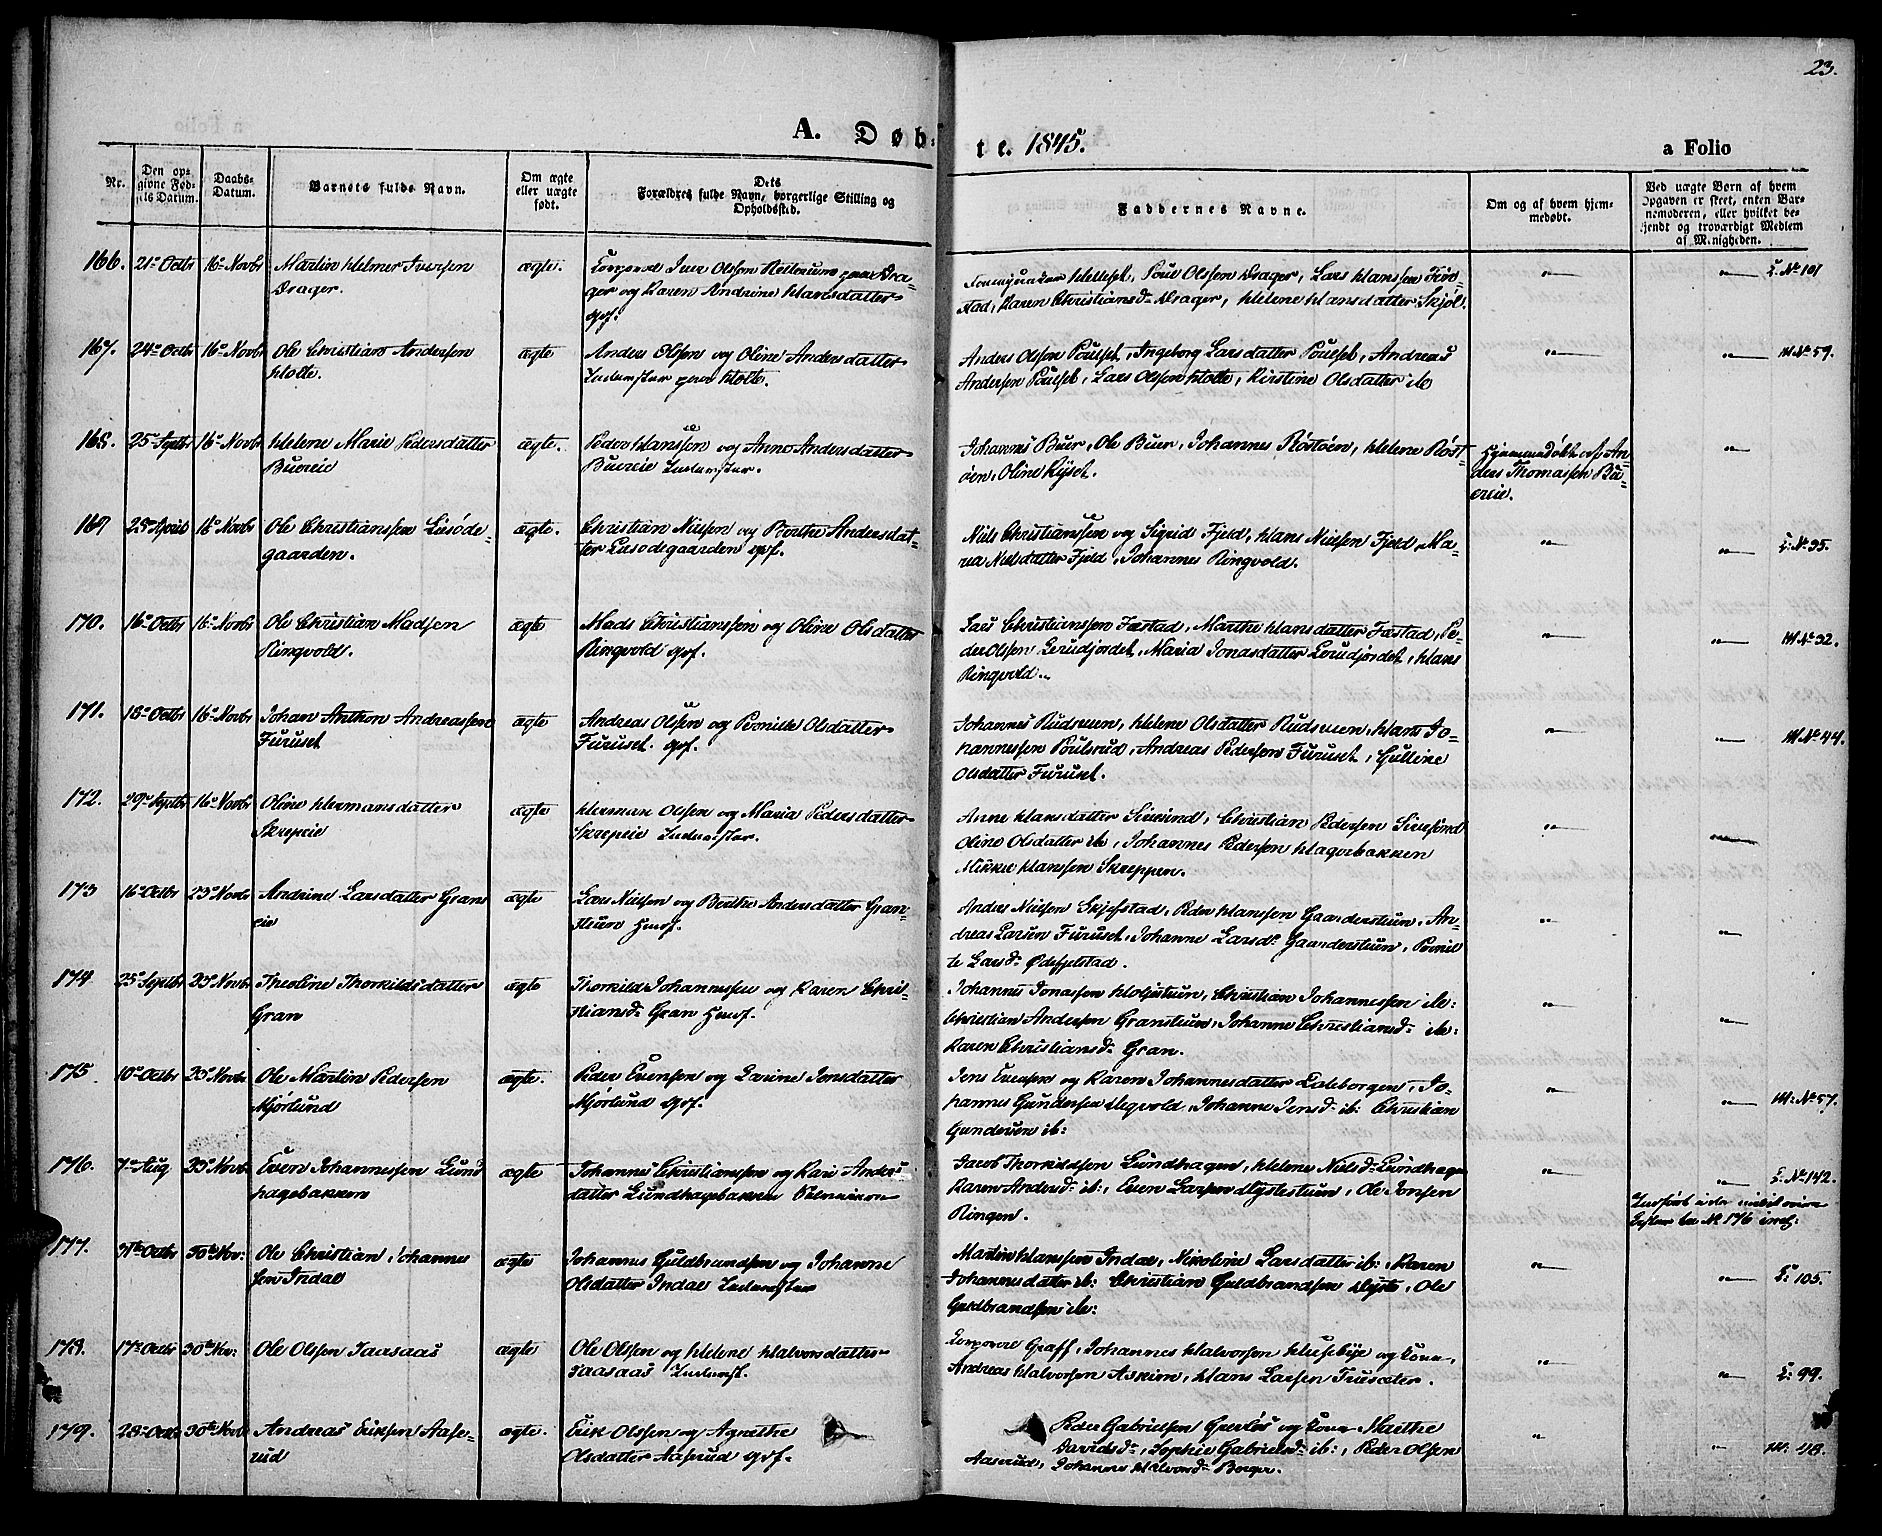 23.
A. Døb-
te. 1845.
a Folio
Nr.
Den op-
givne Fød-
sels Datum.
Daabs-
Datum.
Barnets fulde Navn.
Om ægte
eller uægte
født.
Dets
Forældres fulde Navn, borgerlige Stilling og
Opholdssted.
Faddernes Navne.
Om og af hvem hjem-
medøbt.
Ved uægte Børn af hvem
Opgaven er skeet, enten Bar-
nemoderen, eller hvilket be-
kjendt og troværdigt Medlem
af Menigheden.
166. 21de Octbr 16de Novbr Martin Helmer Iversen
Drager.
ægte.
Iver Olsen
og Karen Andrine Hansdatter
gbf.
Poul Olsen Drager, Lars Hanssen
Karen Christiansd. Drager, Helene Hansdatter Skjøl.
L. No 101
167. 24de Octbr 16de Novbr Ole Christian Andersen
Holte.
ægte
Anders Olsen og Oline Andersdatter
Inderster paa Holte.
Anders Olsen Poulset, Ingeborg Larsdatter Poulset, Andreas
Andersen Poulset, Lars Olsen Holte, Kirstine Olsdatter ib
M No 59.
168. 25de Septbr 16de Novbr Helene Marie Pedersdatter
Buereie
ægte.
Peder Hanssen og Anne Andersdatter
Buereie Inderster.
Johannes Buer, Ole Buer, Johannes Røstøen, Helene Røst-
øen, Oline Ryset.
Hjemmedøbt af An-
ders Thomassen Bu-
ereie.
169 25de April 16de Novbr Ole Christianssen Lusøde-
gaarden.
ægte.
Christian Nielsen og Berthe Andersdat-
ter Lusødegaarden gbf.
Niels Christianssen og Sigrid Fjeld, Hans Nielsen Fjeld, Ma-
ria Nielsdatter Fjeld, Johannes Ringvold.
L. No 95.
170. 16de Octbr 16de Novbr Ole Christian Madsen
Ringvold.
ægte
Mads Christianssen og Oline Olsdatter
Ringvold gbf.
Lars Christianssen Fæstad, Marthe Hansdatter Fæstad, Pe-
der Olsen Lerudjordet, Maria Jonasdatter Lerudjordet, Hans
Ringvold.
M No 32.
171. 18de Octbr 16de Novbr Johan Anthon Andreassen
Furuset
ægte
Andreas Olsen og Pernille Olsdatter
Furuset. gbf.
Johannes Rudsveen, Helene Olsdatter Rudsveen, Hans Jo-
hannessen Poulsrud, Andreas Pedersen Furuset, Gulline
Olsdatter Furuset.
M No 44.
172. 29de Septbr 16de Novbr Oline Hermansdatter
Skrepeie
ægte
Herman Olsen og Maria Pedersdatter
Skrepeie Inderster.
Anne Hansdatter Sivesind, Christian Pedersen Sivesind
Oline Olsdatter ib, Johannes Pedersen Hagebakken
Mikkel Hanssen Skreppen.
173 16de Octbr 23de Novbr Andrine Larsdatter Grans
eie
ægte
Lars Nielsen og Berthe Andersdatter Gran-
stuen Husf.
Anders Nielsen Skjefstad, Peder Hanssen Gaarderstuen, An-
dreas Larsen Furuset, Johanne Larsd. Gaarderstuen, Pernil-
le Larsd. Ødefjelstad.
174 25de Septbr 23de Novbr Theoline Thorkildsdatter
Gran
ægte
Thorkild Johannessen og Karen Chri-
stiansd. Gran Husf.
Johannes Jonassen Holstuen, Christian Johannessen ib:
Christian Andersen Granstuen, Johanne Christiansd. ib:
Karen Christiansd. Gran.
175 10de Octbr 23de Novbr Ole Martin Pedersen
Mjørlund
ægte.
Peder Evensen og Larine Jensdatter
Mjørlund gbf.
Jens Evensen og Karen Johannesdatter Laleborgen, Jo-
hannes Gundersen Hegvold, Johanne Jensd. ib: Christian
Gundersen ib:
M. No 57.
176. 7de Aug 23de Novbr Even Johannessen Lund
hagebakken
ægte
Johannes Christianssen og Kari Anders
datter Lundhagebakken
Jacob Thorkildsen Lundhagen, Helene Nielsd. Lundhagen
Karen Andersd. ib:, Even Larsen Hystestuen, Ole Jonsen
Ringen.
L. No 142.
177. 31te Octbr 30te Nov: Ole Christian Johannes
sen Indal
ægte
Johannes Guldbrandsen og Johanne
Olsdatter Indal Inderster
Martin Hanssen Indal, Nikoline Larsdatter ib: Karen
Johannesdatter ib: Christian Guldbrandsen Dyste, Ole
Guldbrandsen ib:
L: 105.
178. 17de Octbr 30te Nov: Ole Olsen Saasaas
ægte
Ole Olsen og Helene Halvorsdatter
Saasaas Inderst.
Graff, Johannes Halvorsen Huseby og Kone,
Andreas Halvorsen Askim, Hans Larsen Frusæter.
L: 99.
179. 28de Octbr 30te Novbr Andreas Eriksen Aase-
rud
ægte.
Erik Olsen og Agnethe
Olsdatter Aaserud gbf.
Peder Gabrielsen Grevløs og Kone Marthe
Davidsd., Sophie Gabrielsd. ib:, Peder Olsen
Aaserud, Johannes Halvorsd. Berger.
M. 48.